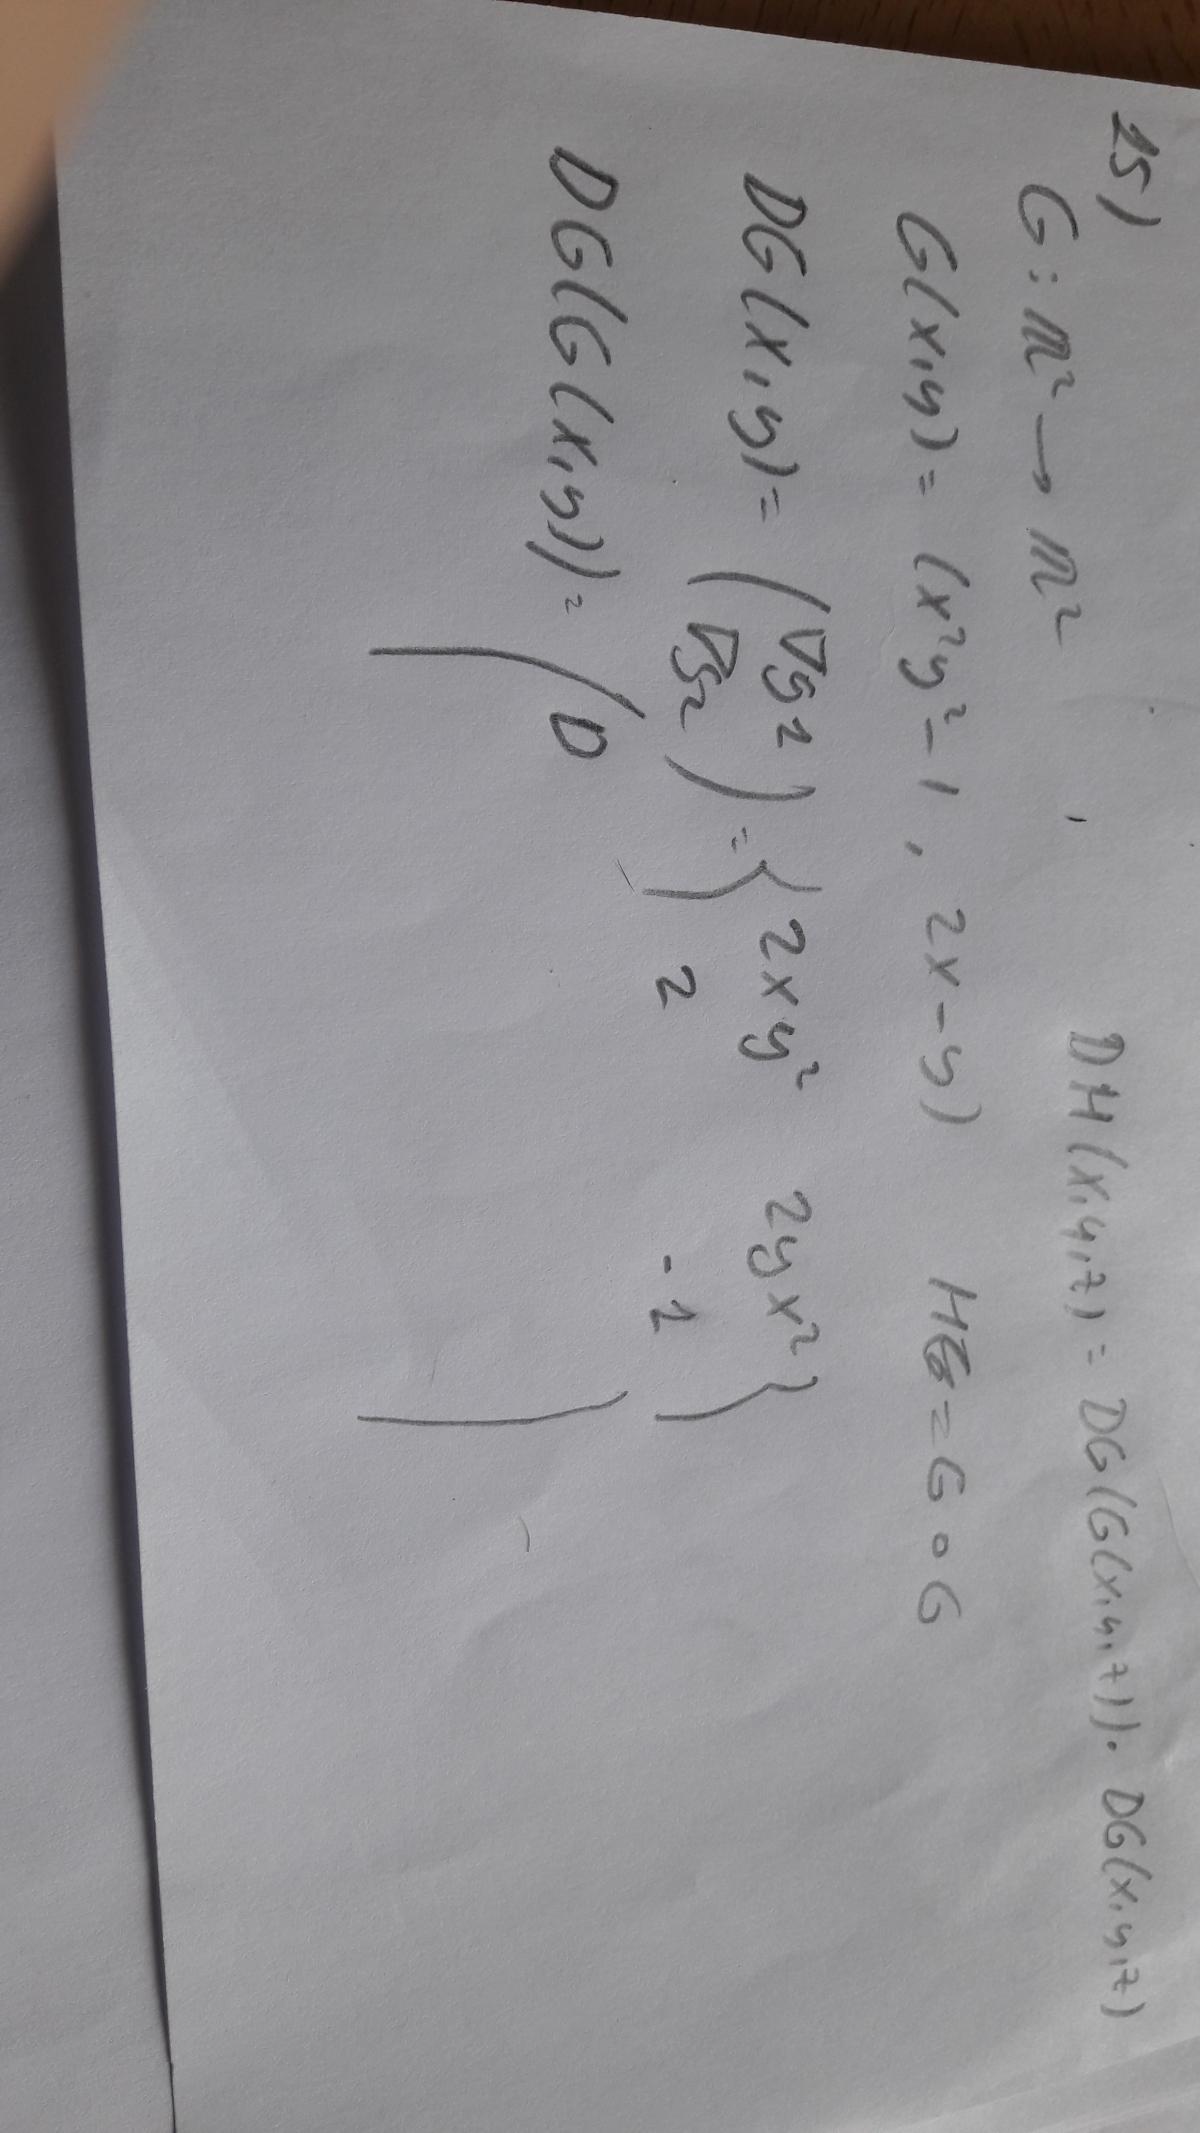 15)
G: ℝ² → ℝ²
DH(x,y,z) = DG(G(x,y,z)). DG(x,y,z)
G(x,y) = (x²y²-1, 2x-y) H = G∘G
DG(x,y) = (∇g1 = (2xy² 2yx²)
∇g2) 2 -1
DG(G(x,y)) = (D )